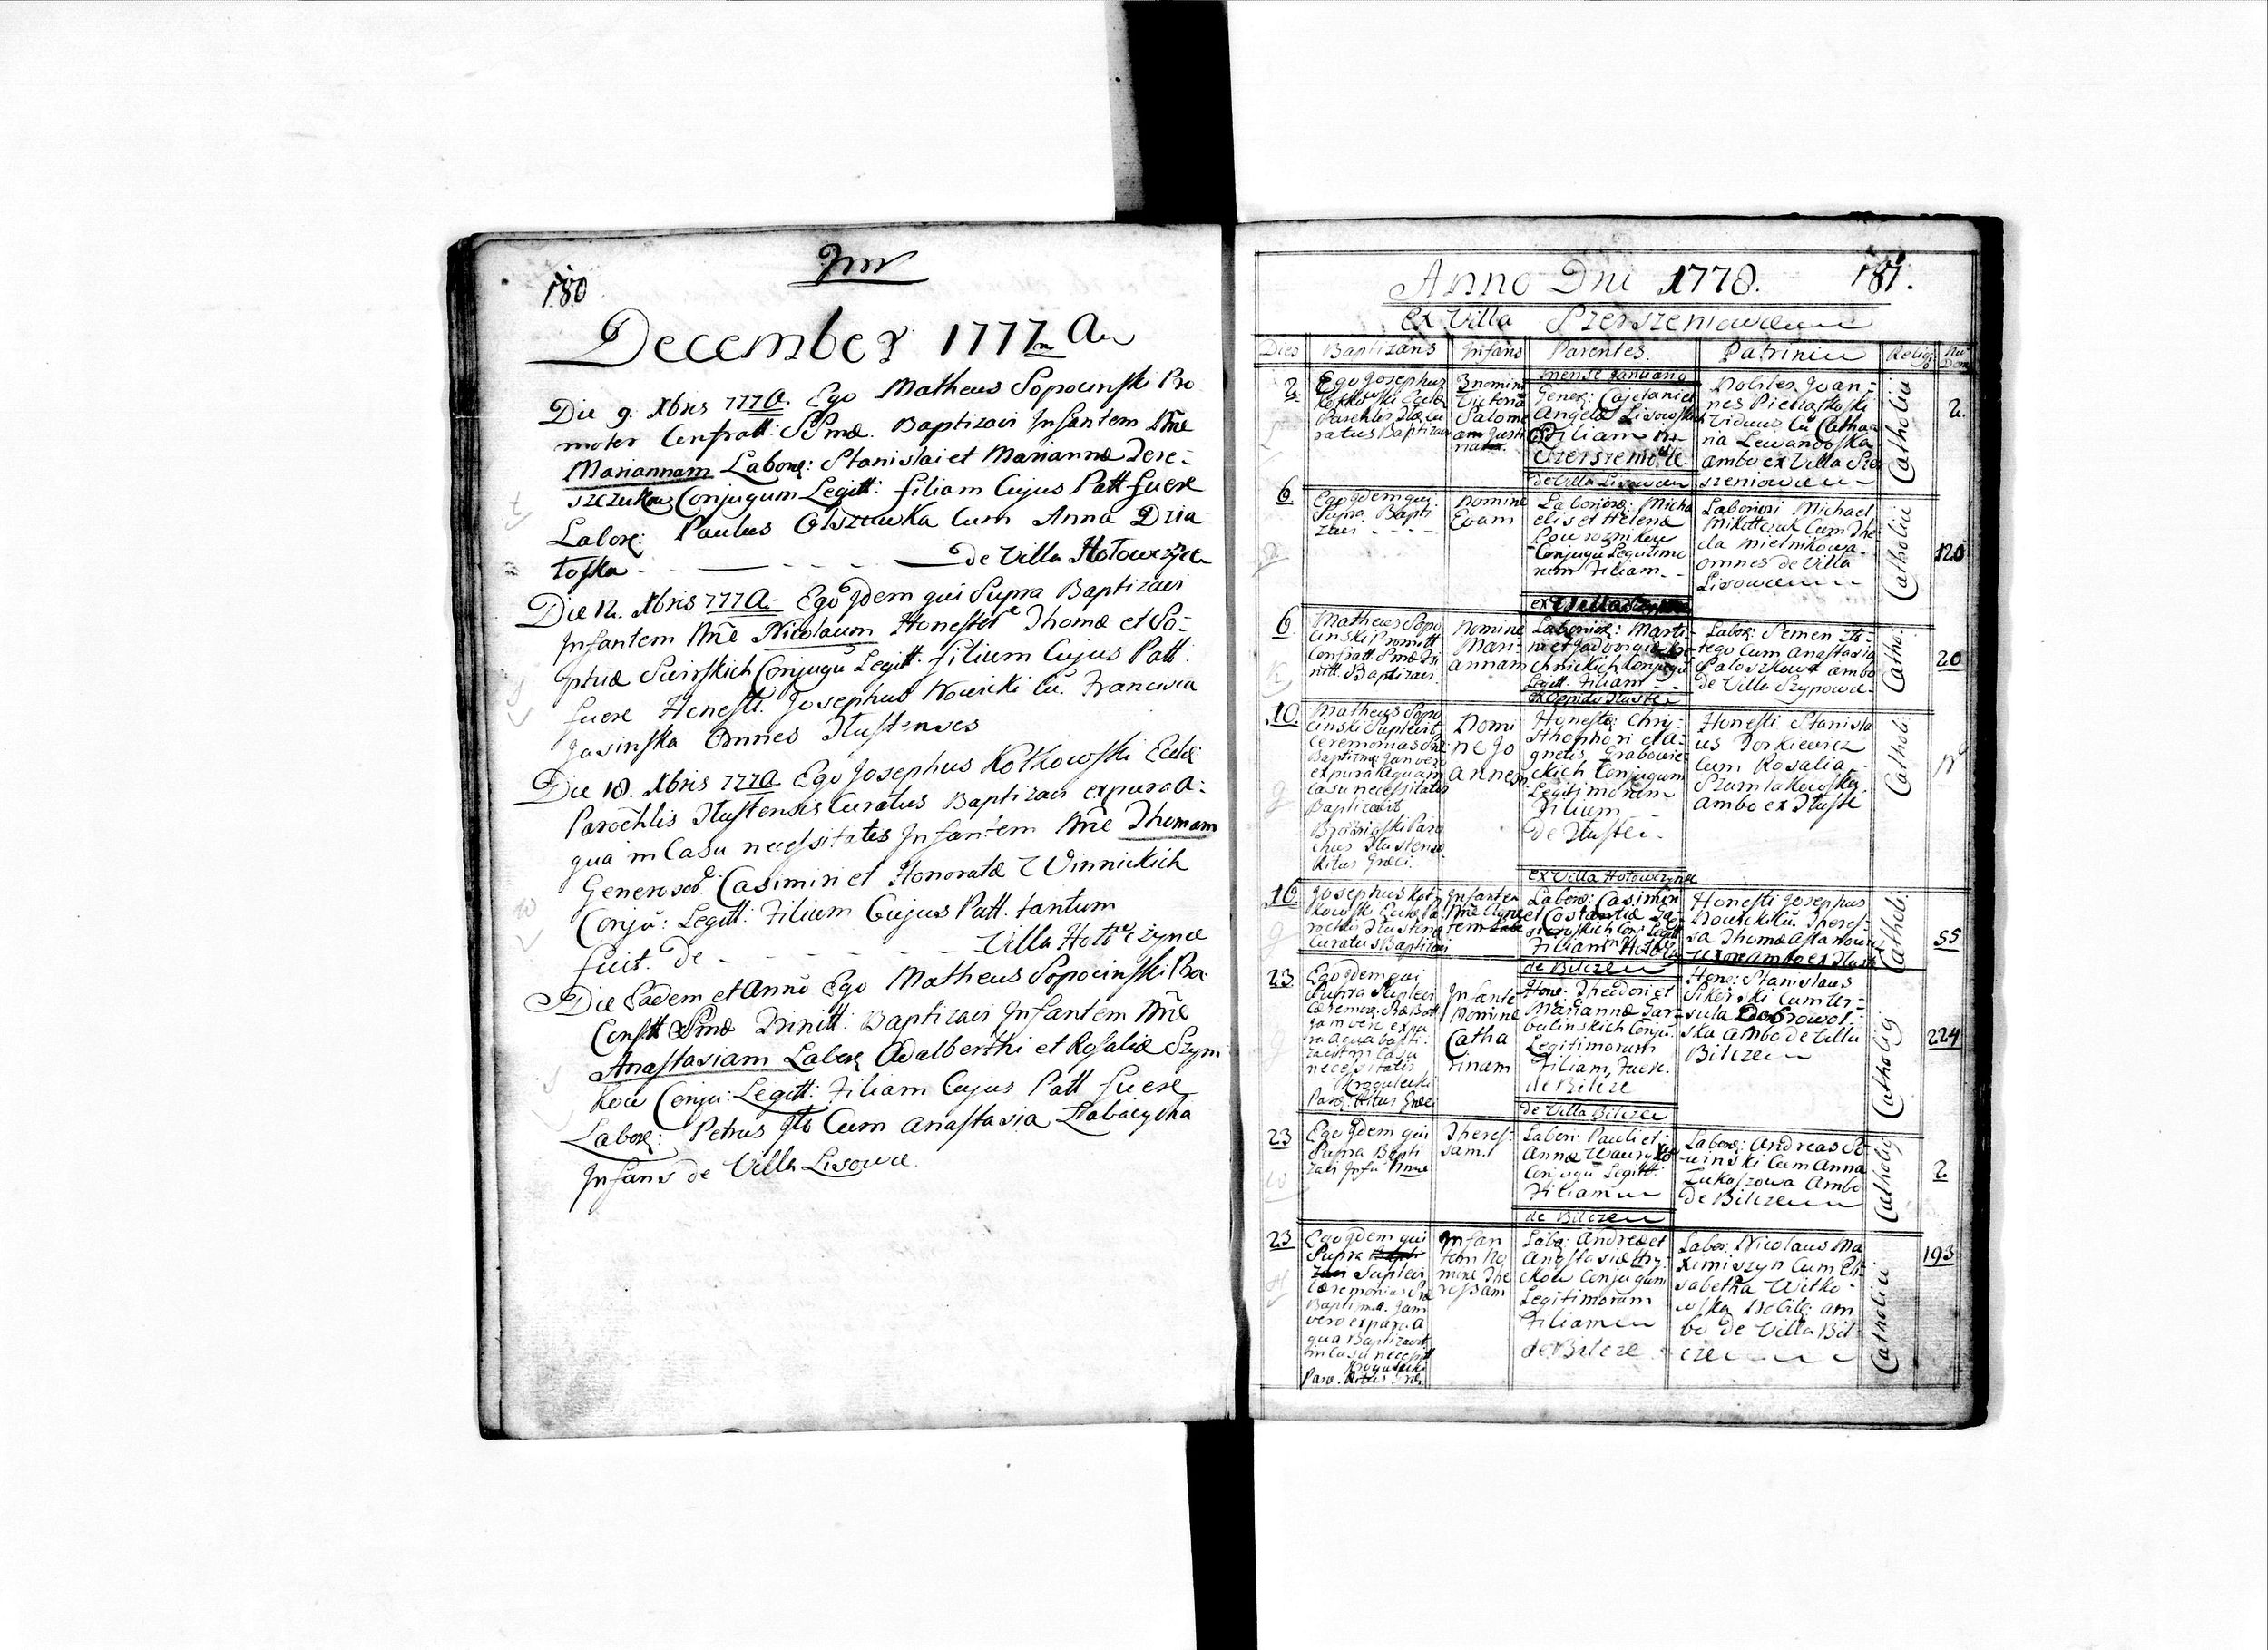 180
December 1777 A
Die 9. Xbris 777 A. Ego Matheus Sopocinski Pro
motor Confratt: SSmæ. Baptizavi Infantem Nne
Mariannam Labor: Stanislai et Mariannæ Tere-
szczukow Conjugum Legitt: filiam Cujus Patt fuere
Labor: Paulus Olszewka Cum Anna Dzia
toska - - - de Villa Hotowczynce
Die 12. Xbris 777 A. Ego Idem qui Supra Baptizavi
Infantem Nne Nicolaum Honestor Thomæ et So-
phiæ Swirskich Conjugu Legitt. filium Cujus Patt.
fuere Honestt. Josephus Nowicki Cu. Francisca
Jasinska Omnes Tlustenses
Die 18. Xbris 777 A Ego Josephus Kotkowski Eccl
Parochlis Tlustensis Curatus Baptizavi ex pura A-
qua in Casu necessitates Infantem Nne Thomam
Generosor. Casimiri et Honoratæ Winnickich
Conju: Legitt: Filium Cujus Patt. tantum
fuit. de - - - - Villa Hotowczynce
Die Eadem et Anno Ego Matheus Sopocinski Pro.
Conftt Smæ Trinitt: Baptizavi Infantem Nne
Anastasiam Labor Adalberthi et Rosaliæ Szym
kow Conju: Legitt: Filiam Cujus Patt fuere
Labor: Petrus Cum Anastasia
Infans de Villa Lisowce.
Anno Dni 1778. 181.
ex Villa Szerszeniowce
Dies Baptizans Infans Parentes. Patrini Relig: Nu Dom
mense Januario
2. Ego Josephus Kotkowski Eccla Parchlis Tlæ Curatus Baptizavi
3 nomine Victoria Salome am Justi nam.
Gener: Cajetani et Angelæ Lisowskich Filiam in Szerszeniowce
Nobiles Joan- nes Pietraskoski Viduus Cu Catha- rina Lewandoska ambo ex Villa Szer szeniowce
Catholici
2.
de Villa Lisowce
6 Ego Idem qui Supra Bapti zavi - - -
Nomine Evam
Laborior: Micha elis et Helenæ Powoznikow Conjugu Legitimo rum Filiam
Laboriosi Michael Mikittczuk Cum The cla Mielnikowa omnes de Villa Lisowce
Catholici
120
6 Matheus Sopo cinski Promott Confratt Smæ Tri nitt. Baptizavi
Nomine Mari- annam
Laborior: Marti- ni et chnickich Conjugu Legitt. Filiam
Labor: Semen tego Cum Anastasia ambo de Villa Szypowce
Catho:
20
ex Oppido Tluste
10. Matheus Sopo cinski Suplevit Ceremonias Præ Baptizmi Jam vero ex pura Aqua in Casu necessitatis Baptizavit Paro chus Tlustensis Ritus Græci.
Nomi ne Jo annem
Honestor: Chry- sthophori et A- gnetis Grabowie ckich Conjugum Legitimorum Filium de Tluste
Honesti Stanisla us Torkiewicz Cum Rosalia Szumlakowska Ambo ex Tluste
Catholi:
ex Villa Hotowczynce
16. Josephus Kot kowski Ecclæ Pa rochlis Tlustens. Curatus Baptizavi
Infantem Nne Agne tem
Labor: Casimiri et Costantiæ Ga- sierowskich Con: Legitt Filiam
Honesti Josephus Nowicki Cu. Theres- sa Thomaszowa ambo ex Tluste
Catholi:
55
de Bilcze
23. Ego Idem qui Supra Suplevi Ceremon. Præ Bapt jam vero ex pu ra Aqua bapti- zavit in Casu necessitatis Paro: Ritus Græci
Infante Nomine Catha rinam
Hono: Theodori et Mariannæ Jar balinskich Conju. Legitimorum Filiam, Fuere. de Bilcze
Hono: Stanislaus Sikorski Cum Ur- sula Dobrowol- ska Ambo de Villa Bilcze
Catholig
224
de Villa Bilcze
23 Ego Idem qui Supra Bapti zavi Infa Nne
Theres- sam
Labor: Pauli et Annæ Conjugu Legitt: Filiam
Labor: Andreas So- winski Cum Anna Lukaszowa Ambo de Bilcze
Catholig
2
de Bilcze
23 Ego Idem qui Supra Suplevi Ceremonias Præ Baptizmi. Jam vero ex pura A qua Baptizavit in Casu necessitt Paro. Ritus Græ
Infan tem No mine The ressam
Labo: Andreæ et Anastasiæ Hry- ckow Conjugum Legitimorum Filiam de Bilcze
Labor: Nicolaus Ma ximiszyn Cum Eli- sabetha Witko- wska Nobili: am bo de Villa Bil cze
Catholici
193